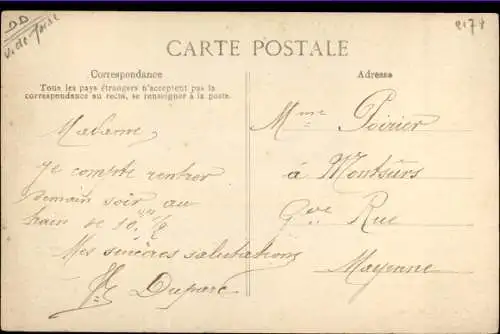 DD
V. de Paris
2178
CARTE POSTALE
Correspondance
Tous les pays étrangers n'acceptent pas la
correspondance au recto, se renseigner à la poste.
Adresse
Madame,
Je compte rentrer
demain soir au
train de 10 h 1/2
Mes sincères salutations
Duparc
Mme Poirier
à Montsûrs
Gde Rue
Mayenne